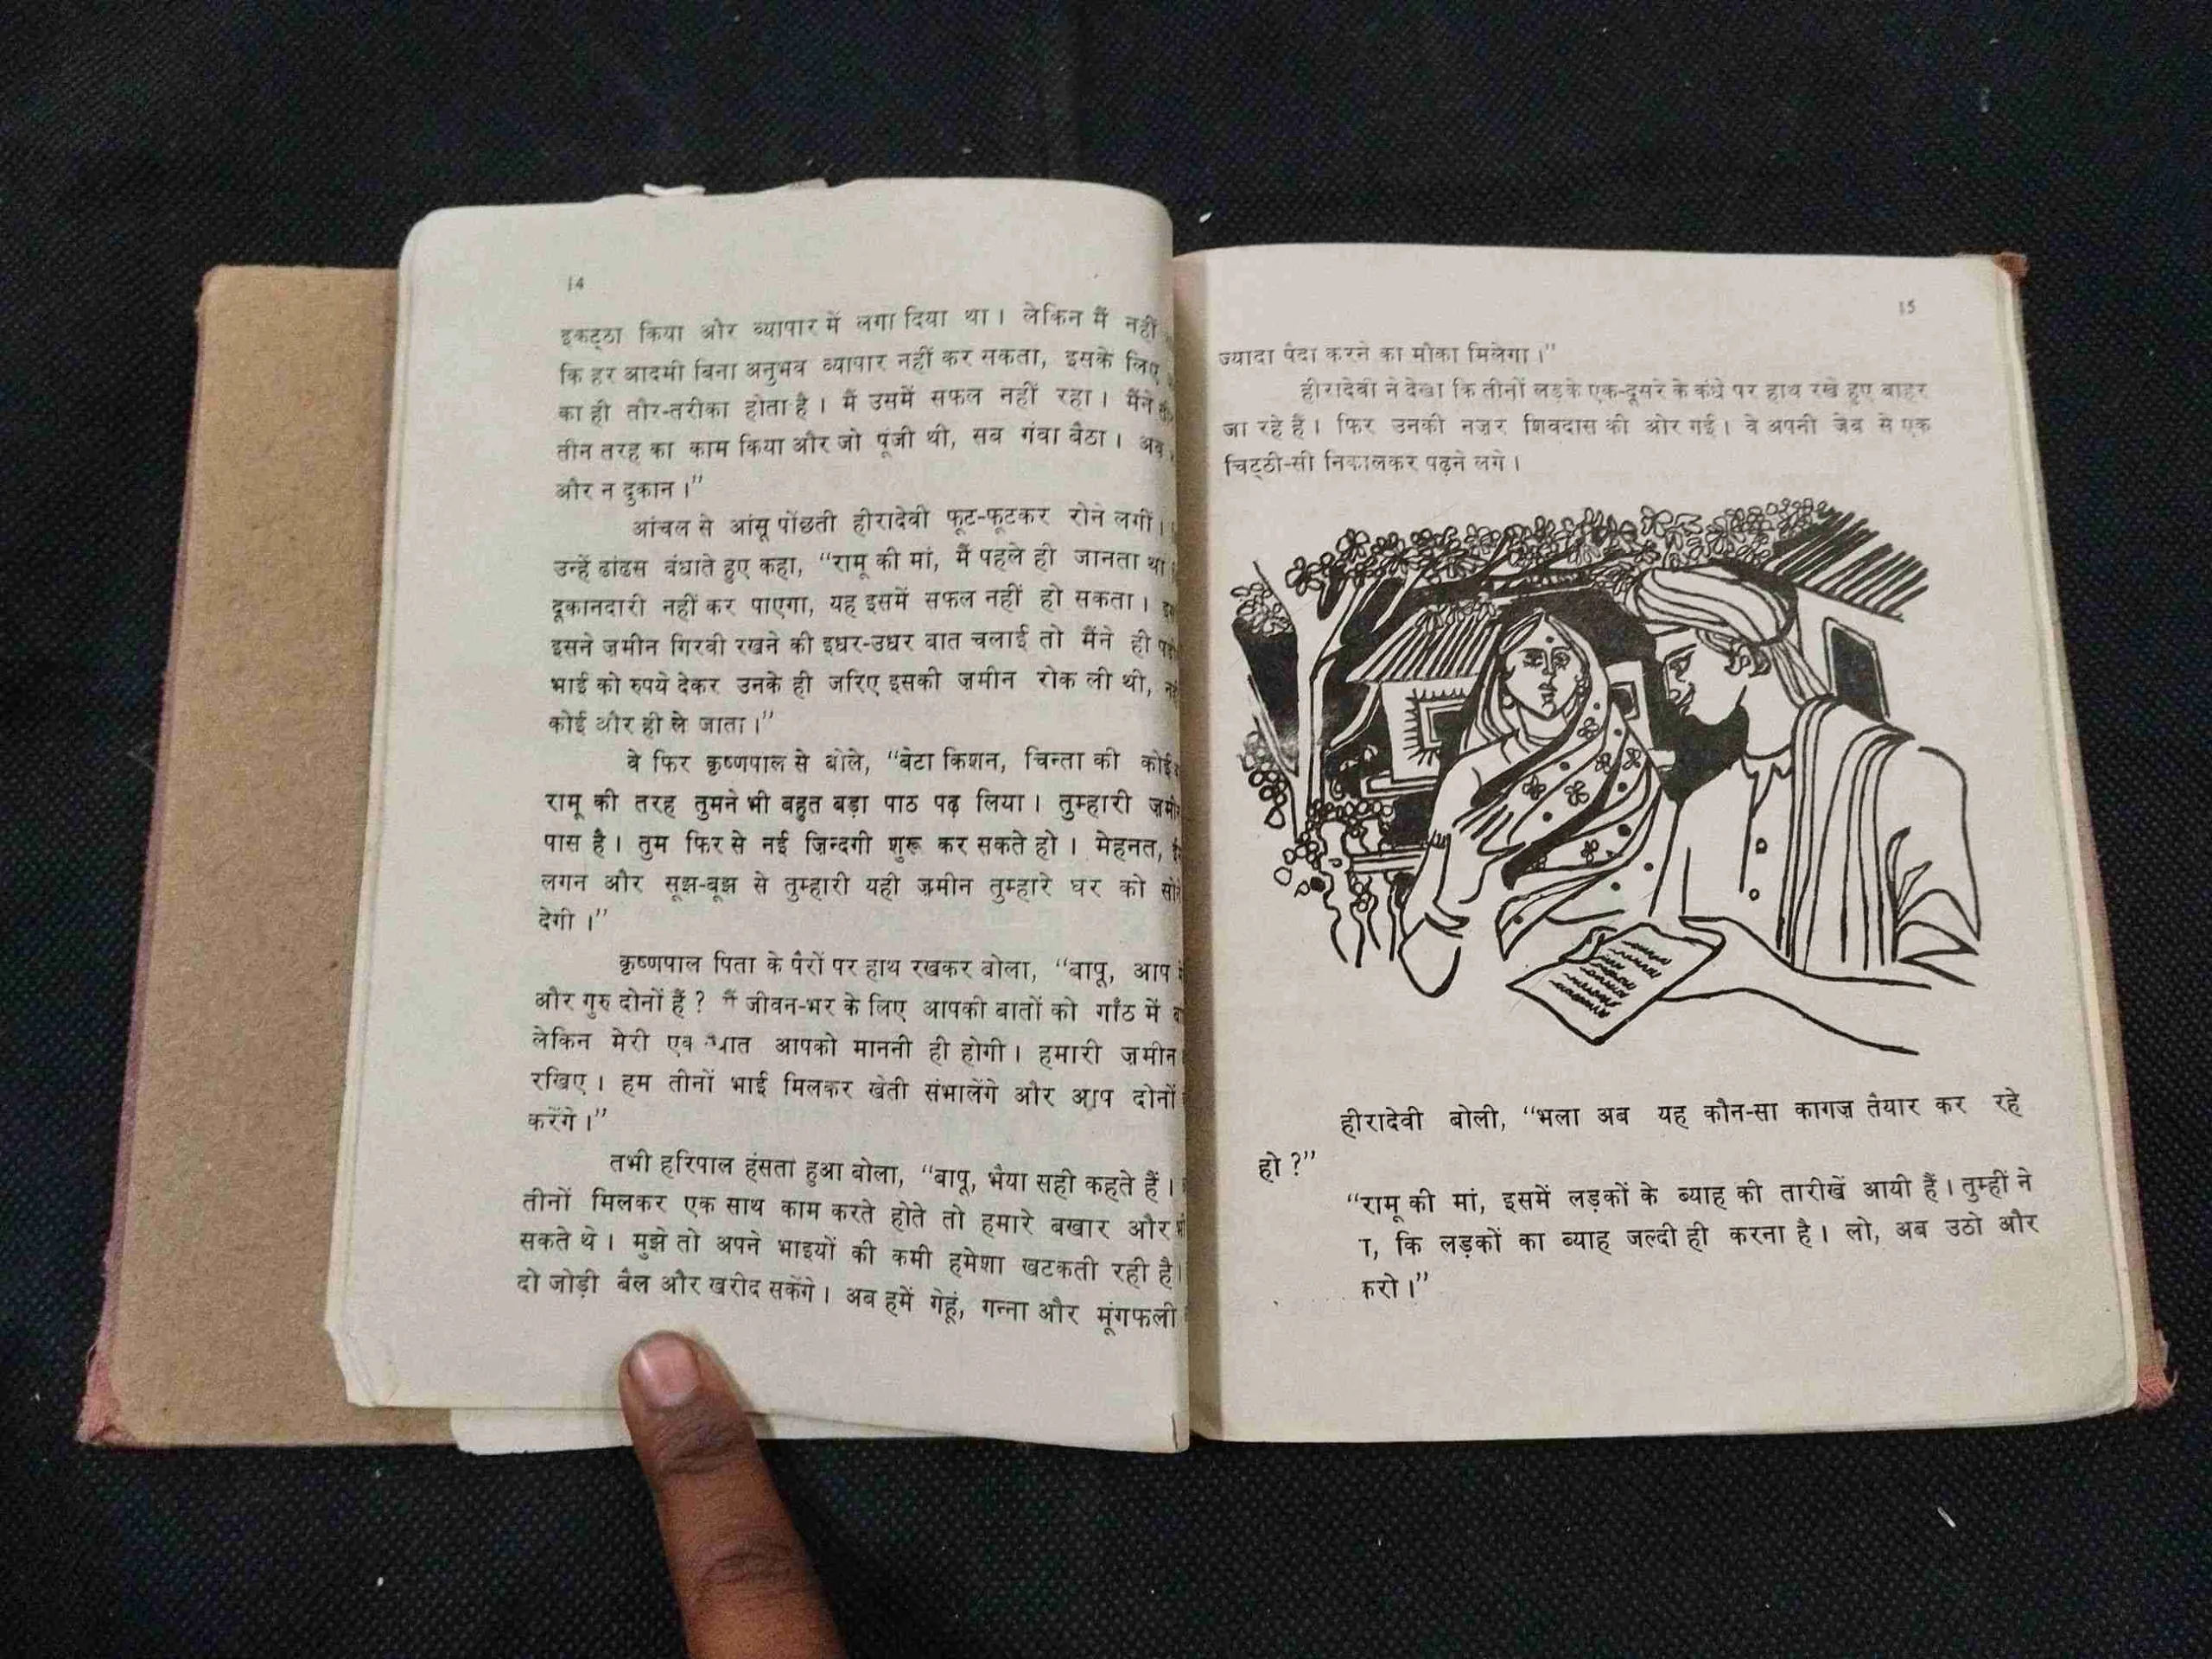 14
इकट्ठा किया और व्यापार में लगा दिया था। लेकिन मैं नहीं
कि हर आदमी बिना अनुभव व्यापार नहीं कर सकता, इसके लिए
का ही तौर-तरीका होता है। मैं उसमें सफल नहीं रहा। मैंने
तीन तरह का काम किया और जो पूंजी थी, सब गंवा बैठा। अब
और न दुकान।”
आंचल से आंसू पोंछती हीरादेवी फूट-फूटकर रोने लगीं।
उन्हें ढांढस बंधाते हुए कहा, “रामू की मां, मैं पहले ही जानता था
दूकानदारी नहीं कर पाएगा, यह इसमें सफल नहीं हो सकता।
इसने ज़मीन गिरवी रखने की इधर-उधर बात चलाई तो मैंने ही
भाई को रुपये देकर उनके ही जरिए इसकी ज़मीन रोक ली थी,
कोई और ही ले जाता।”
वे फिर कृष्णपाल से बोले, “बेटा किशन, चिन्ता की कोई
रामू की तरह तुमने भी बहुत बड़ा पाठ पढ़ लिया। तुम्हारी
पास है। तुम फिर से नई ज़िन्दगी शुरू कर सकते हो। मेहनत,
लगन और सूझ-बूझ से तुम्हारी यही ज़मीन तुम्हारे घर को
देगी।”
कृष्णपाल पिता के पैरों पर हाथ रखकर बोला, “बापू, आप
और गुरु दोनों हैं? मैं जीवन-भर के लिए आपकी बातों को गाँठ में
लेकिन मेरी एक बात आपको माननी ही होगी। हमारी ज़मीन
रखिए। हम तीनों भाई मिलकर खेती संभालेंगे और आप दोनों
करेंगे।”
तभी हरिपाल हंसता हुआ बोला, “बापू, भैया सही कहते हैं।
तीनों मिलकर एक साथ काम करते होते तो हमारे बखार और
सकते थे। मुझे तो अपने भाइयों की कमी हमेशा खटकती रही है।
दो जोड़ी बैल और खरीद सकेंगे। अब हमें गेहूं, गन्ना और मूंगफली
15
ज्यादा पैदा करने का मौका मिलेगा।”
हीरादेवी ने देखा कि तीनों लड़के एक-दूसरे के कंधे पर हाथ रखे हुए बाहर
जा रहे हैं। फिर उनकी नज़र शिवदास की ओर गई। वे अपनी जेब से एक
चिट्ठी-सी निकालकर पढ़ने लगे।
हीरादेवी बोली, “भला अब यह कौन-सा कागज़ तैयार कर रहे
हो?”
“रामू की मां, इसमें लड़कों के ब्याह की तारीखें आयी हैं। तुम्हीं ने
कि लड़कों का ब्याह जल्दी ही करना है। लो, अब उठो और
करो।”